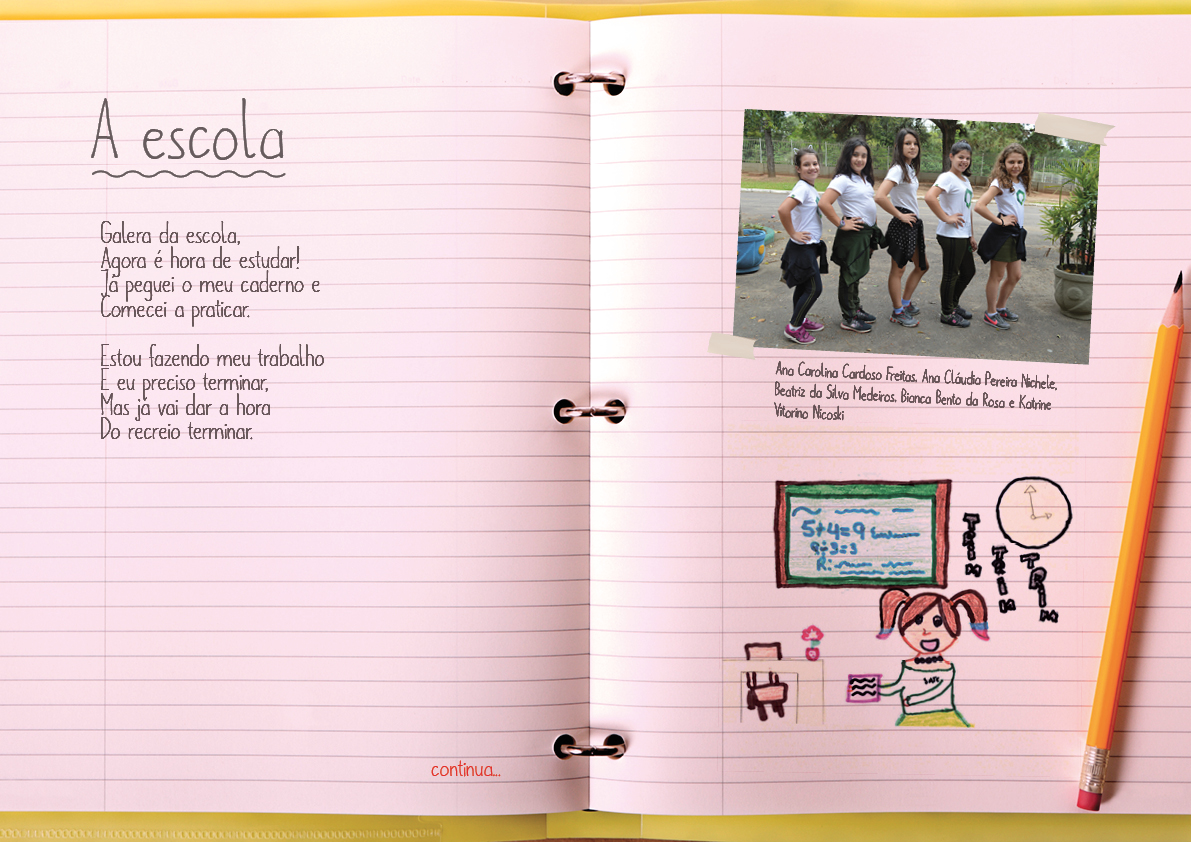 A escola
Galera da escola,
Agora é hora de estudar!
Já peguei o meu caderno e
Comecei a praticar.
Estou fazendo meu trabalho
E eu preciso terminar,
Mas já vai dar a hora
Do recreio terminar.
continua...
Ana Carolina Cardoso Freitas, Ana Cláudia Pereira Nichele,
Beatriz da Silva Medeiros, Bianca Bento da Rosa e Katrine
Vitorino Nicoski
5+4=9
9÷3=3
R:
TRIM
TRIM
TRIM